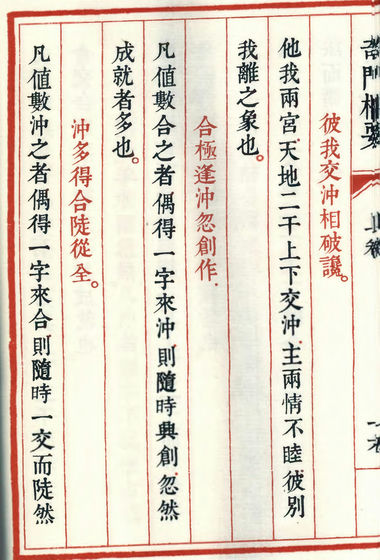 彼我交沖相破讒。
他我兩宮天地二干上下交沖主兩情不睦彼別
我離之象也。
合極逢沖忽創作.
凡值數合之者偶得一字來沖則隨時興創忽然
成就者多也。
沖多得合陡從全。
凡值數沖之者偶得一字來合則隨時一交而陡然